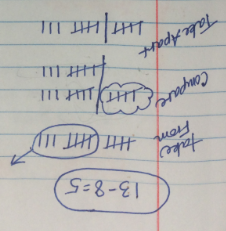 13-8=5
Take From
Compare
Take Apart